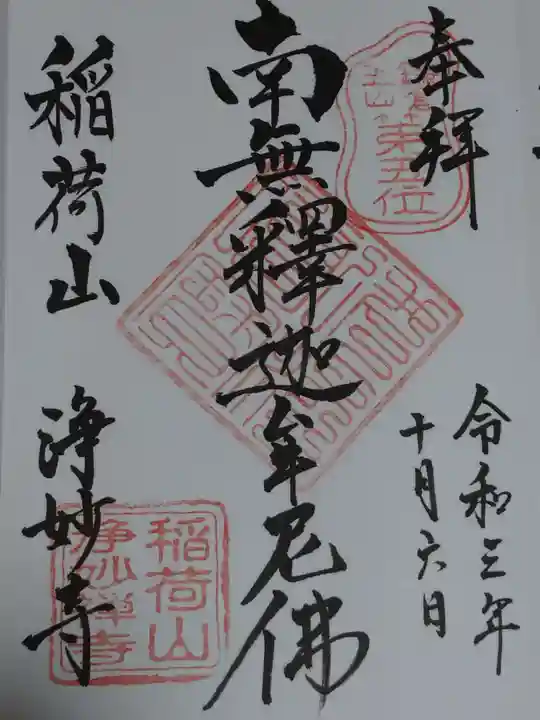 奉拝
第五位
令和三年
十月六日
南無釋迦牟尼佛
稲荷山 浄妙寺
稲荷山
浄妙禅寺